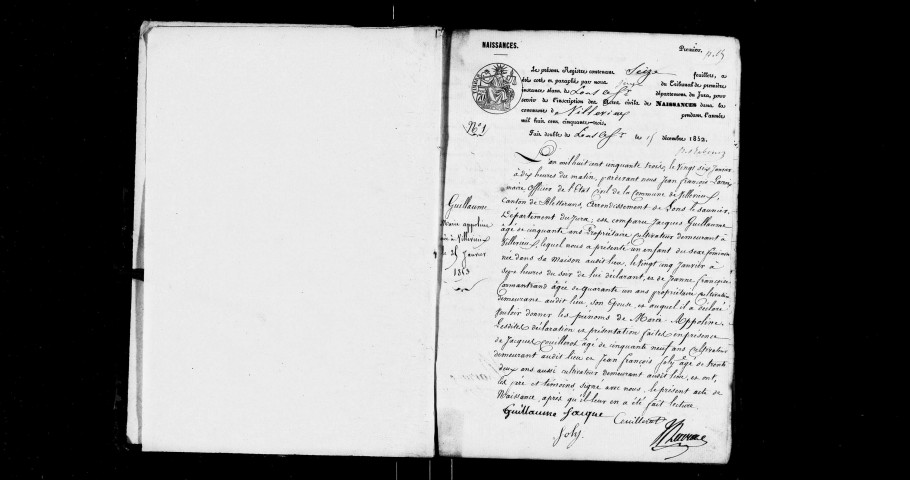 NAISSANCES.
Premier.
Le présent Registre contenant Seize feuillets, a
été coté et paraphé par nous juge du Tribunal de première
instance séant de Lons département du Jura, pour
servir de l'inscription des Actes civils de NAISSANCES dans la
commune de Villevieux pendant l'année
mil huit cent cinquante-trois.
Fait double de Lons le 15 décembre 1852.
N° 1
Guillaume
Marie appoline
née à Villevieux
le 25 Janvier
1853
L'an mil huit cent cinquante trois, le vingt six Janvier
à dix heures du matin, pardevant nous Jean François
maire Officier de l'Etat Civil de la Commune de Villevieux,
Canton de Bletterans, Arrondissement de Lons le saunier,
Département du Jura; est comparu Jacques Guillaume
âgé de cinquante ans Propriétaire cultivateur demeurant à
Villevieux, lequel nous a présenté un enfant du sexe féminin
née dans sa Maison audit lieu, le Vingt cinq Janvier à
sept heures du soir de lui déclarant, et de Jeanne françoise
Cormantrand âgée de quarante un ans propriétaire cultivatrice
demeurant audit lieu, son épouse, et auquel il a déclaré
vouloir donner les prénoms de Marie-Appoline.
Lesdites déclaration et présentation faites en présence
de Jacques Couillerot âgé de cinquante neuf ans cultivateur
demeurant audit lieu et Jean françois Joly âgé de trente
deux ans aussi cultivateur demeurant audit lieu, et ont,
les père et témoins signé avec nous, le présent acte de
Naissance, après qu'il leur en a été fait lecture.
Guillaume Jacque Couillerot
Joly.